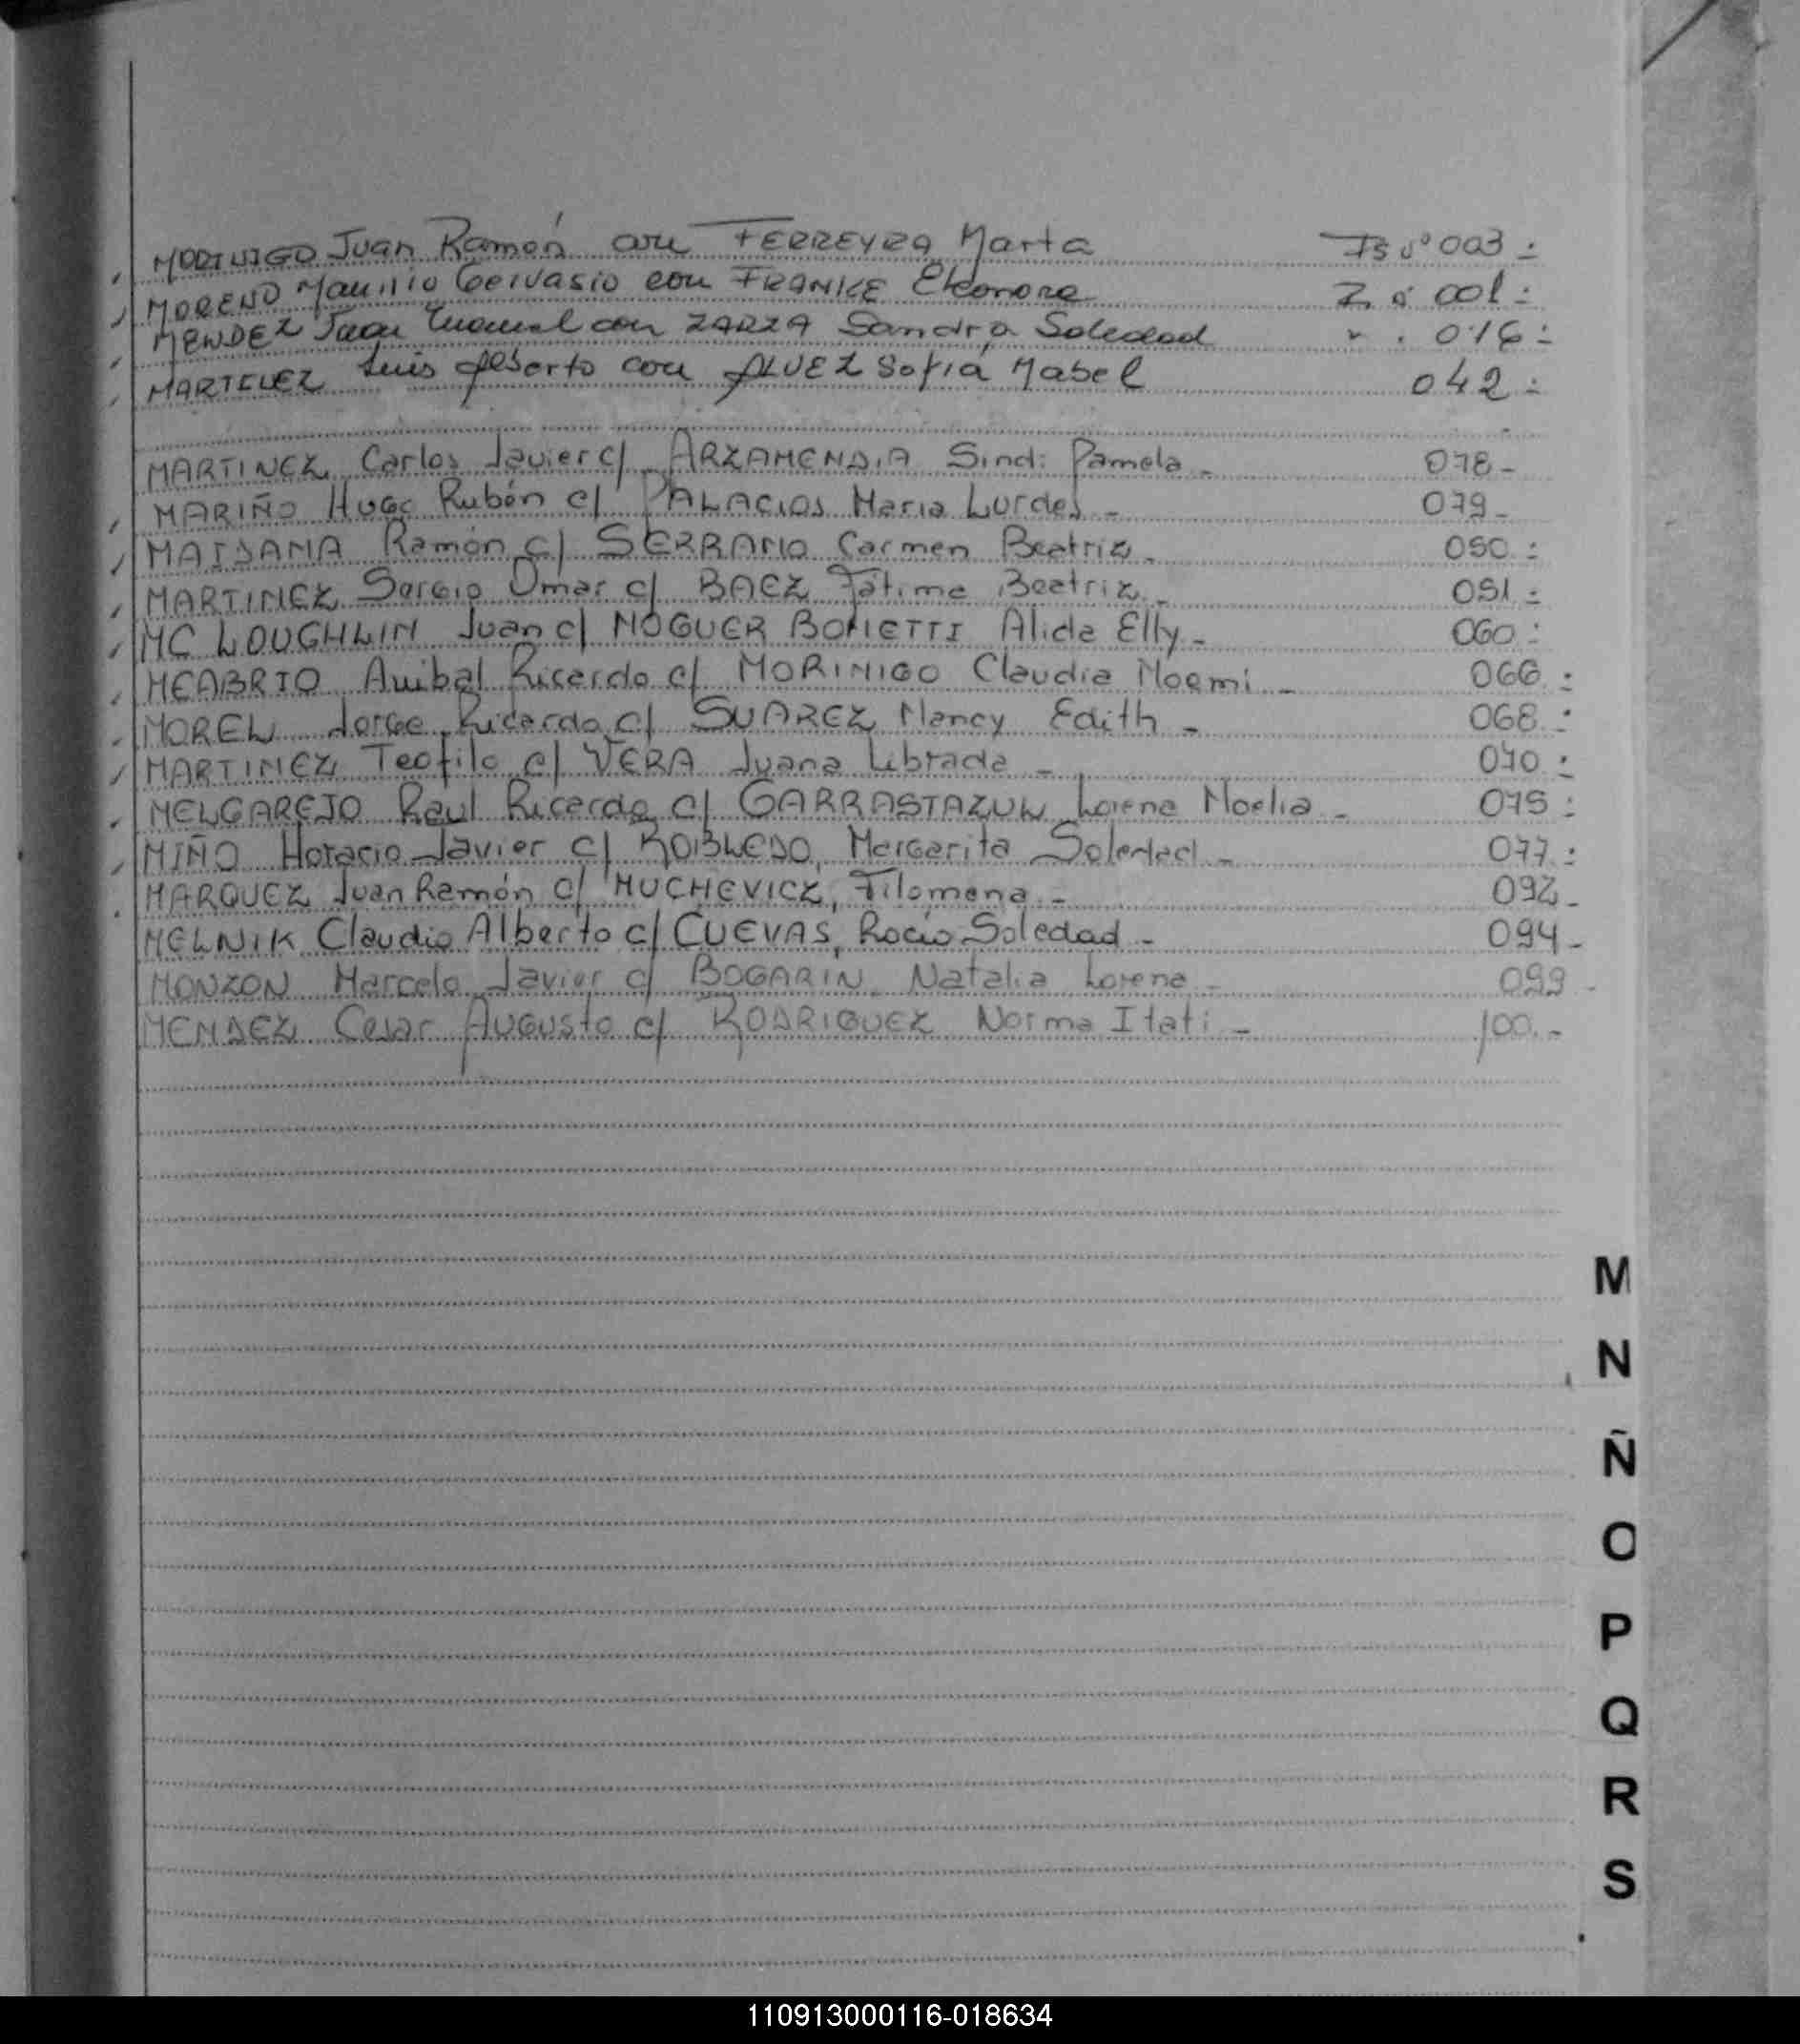 MORINIGO Juan Ramón con FERREYRA Marta Fs Nº 003 :
MORENO Maurilio Gervasio con FRANKE Eleonora 001 :
MENDEZ Juan Manuel con ZARZA Sandra Soledad " . 016 :
MARTINEZ Luis Alberto con ALVEZ Sofía Mabel 042 :
MARTINEZ Carlos Javier c/ ARZAMENDIA Sindi Pamela - 078 -
MARIÑO Hugo Rubén c/ PALACIOS Maria Lurdes - 079 -
MAIDANA Ramón c/ SERRANO Carmen Beatriz - 050 :
MARTINEZ Sergio Omar c/ BAEZ Fátima Beatriz - 051 :
MC LOUGHLIN Juan c/ NOGUER BONETTI Alida Elly - 060 :
MEABRIO Anibal Ricardo c/ MORINIGO Claudia Noemi - 066 :
MOREL Jorge Ricardo c/ SUAREZ Nancy Edith - 068 :
MARTINEZ Teofilo c/ VERA Juana Librada - 070 :
MELGAREJO Raul Ricardo c/ GARRASTAZUL Lorena Noelia - 075 :
MIÑO Horacio Javier c/ ROBLEDO, Margarita Soledad - 077 :
MARQUEZ Juan Ramón c/ MUCHEVICZ, Filomena - 092 -
MELNIK Claudio Alberto c/ CUEVAS, Rocío Soledad - 094 -
MONZON Marcelo Javier c/ BOGARIN Natalia Lorena - 099 -
MENDEZ Cesar Augusto c/ RODRIGUEZ Norma Itati - 100 -
M
N
Ñ
O
P
Q
R
S
110913000116-018634